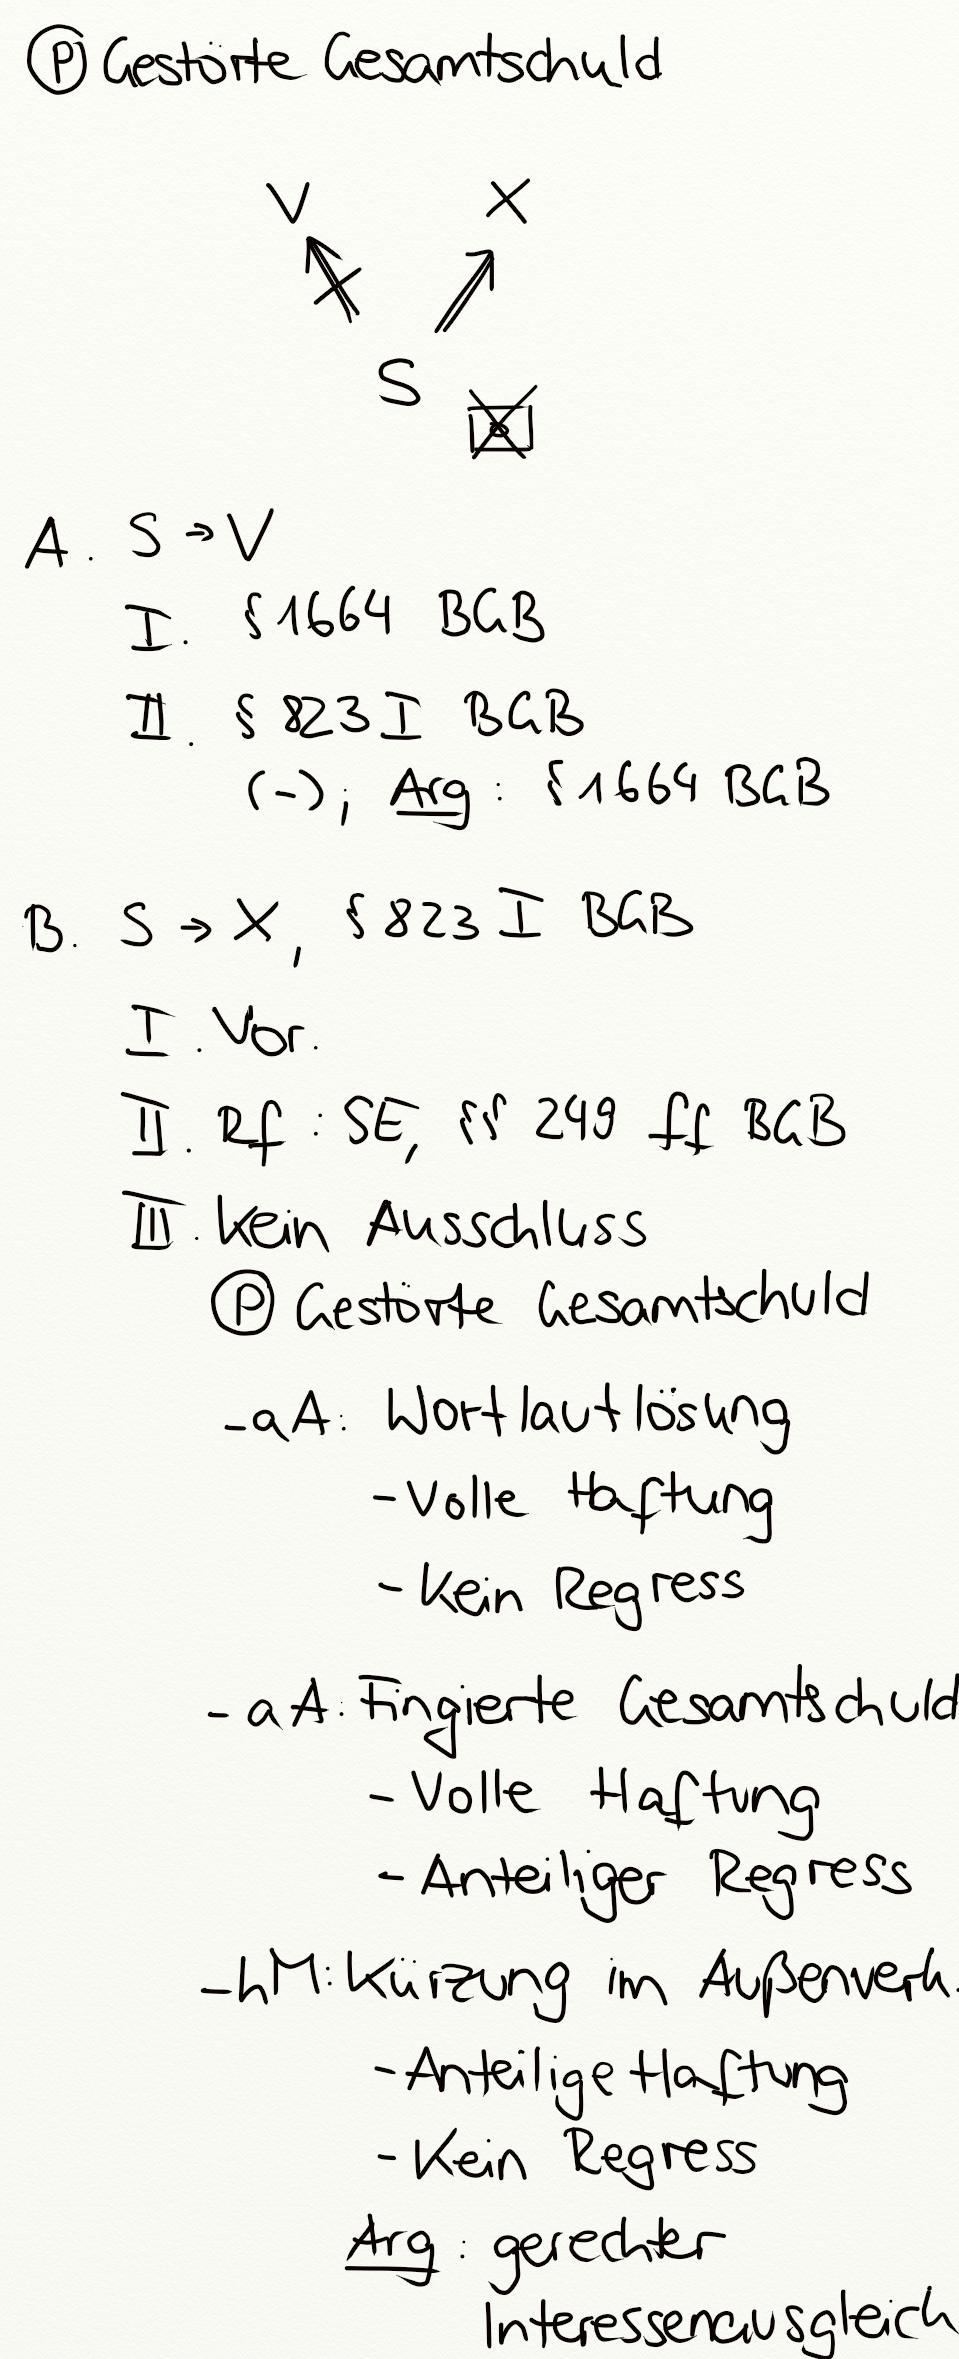 Ⓟ Gestörte Gesamtschuld
V X
S
A. S → V
I. § 1664 BGB
II. § 823 I BGB
(-); Arg: § 1664 BGB
B. S → X, § 823 I BGB
I. Vor.
II. Rf: SE, §§ 249 ff BGB
III. Kein Ausschluss
Ⓟ Gestörte Gesamtschuld
- aA: Wortlautlösung
- Volle Haftung
- Kein Regress
- aA: Fingierte Gesamtschuld
- Volle Haftung
- Anteiliger Regress
- hM: Kürzung im Außenverh.
- Anteilige Haftung
- Kein Regress
Arg: gerechter
Interessenausgleich